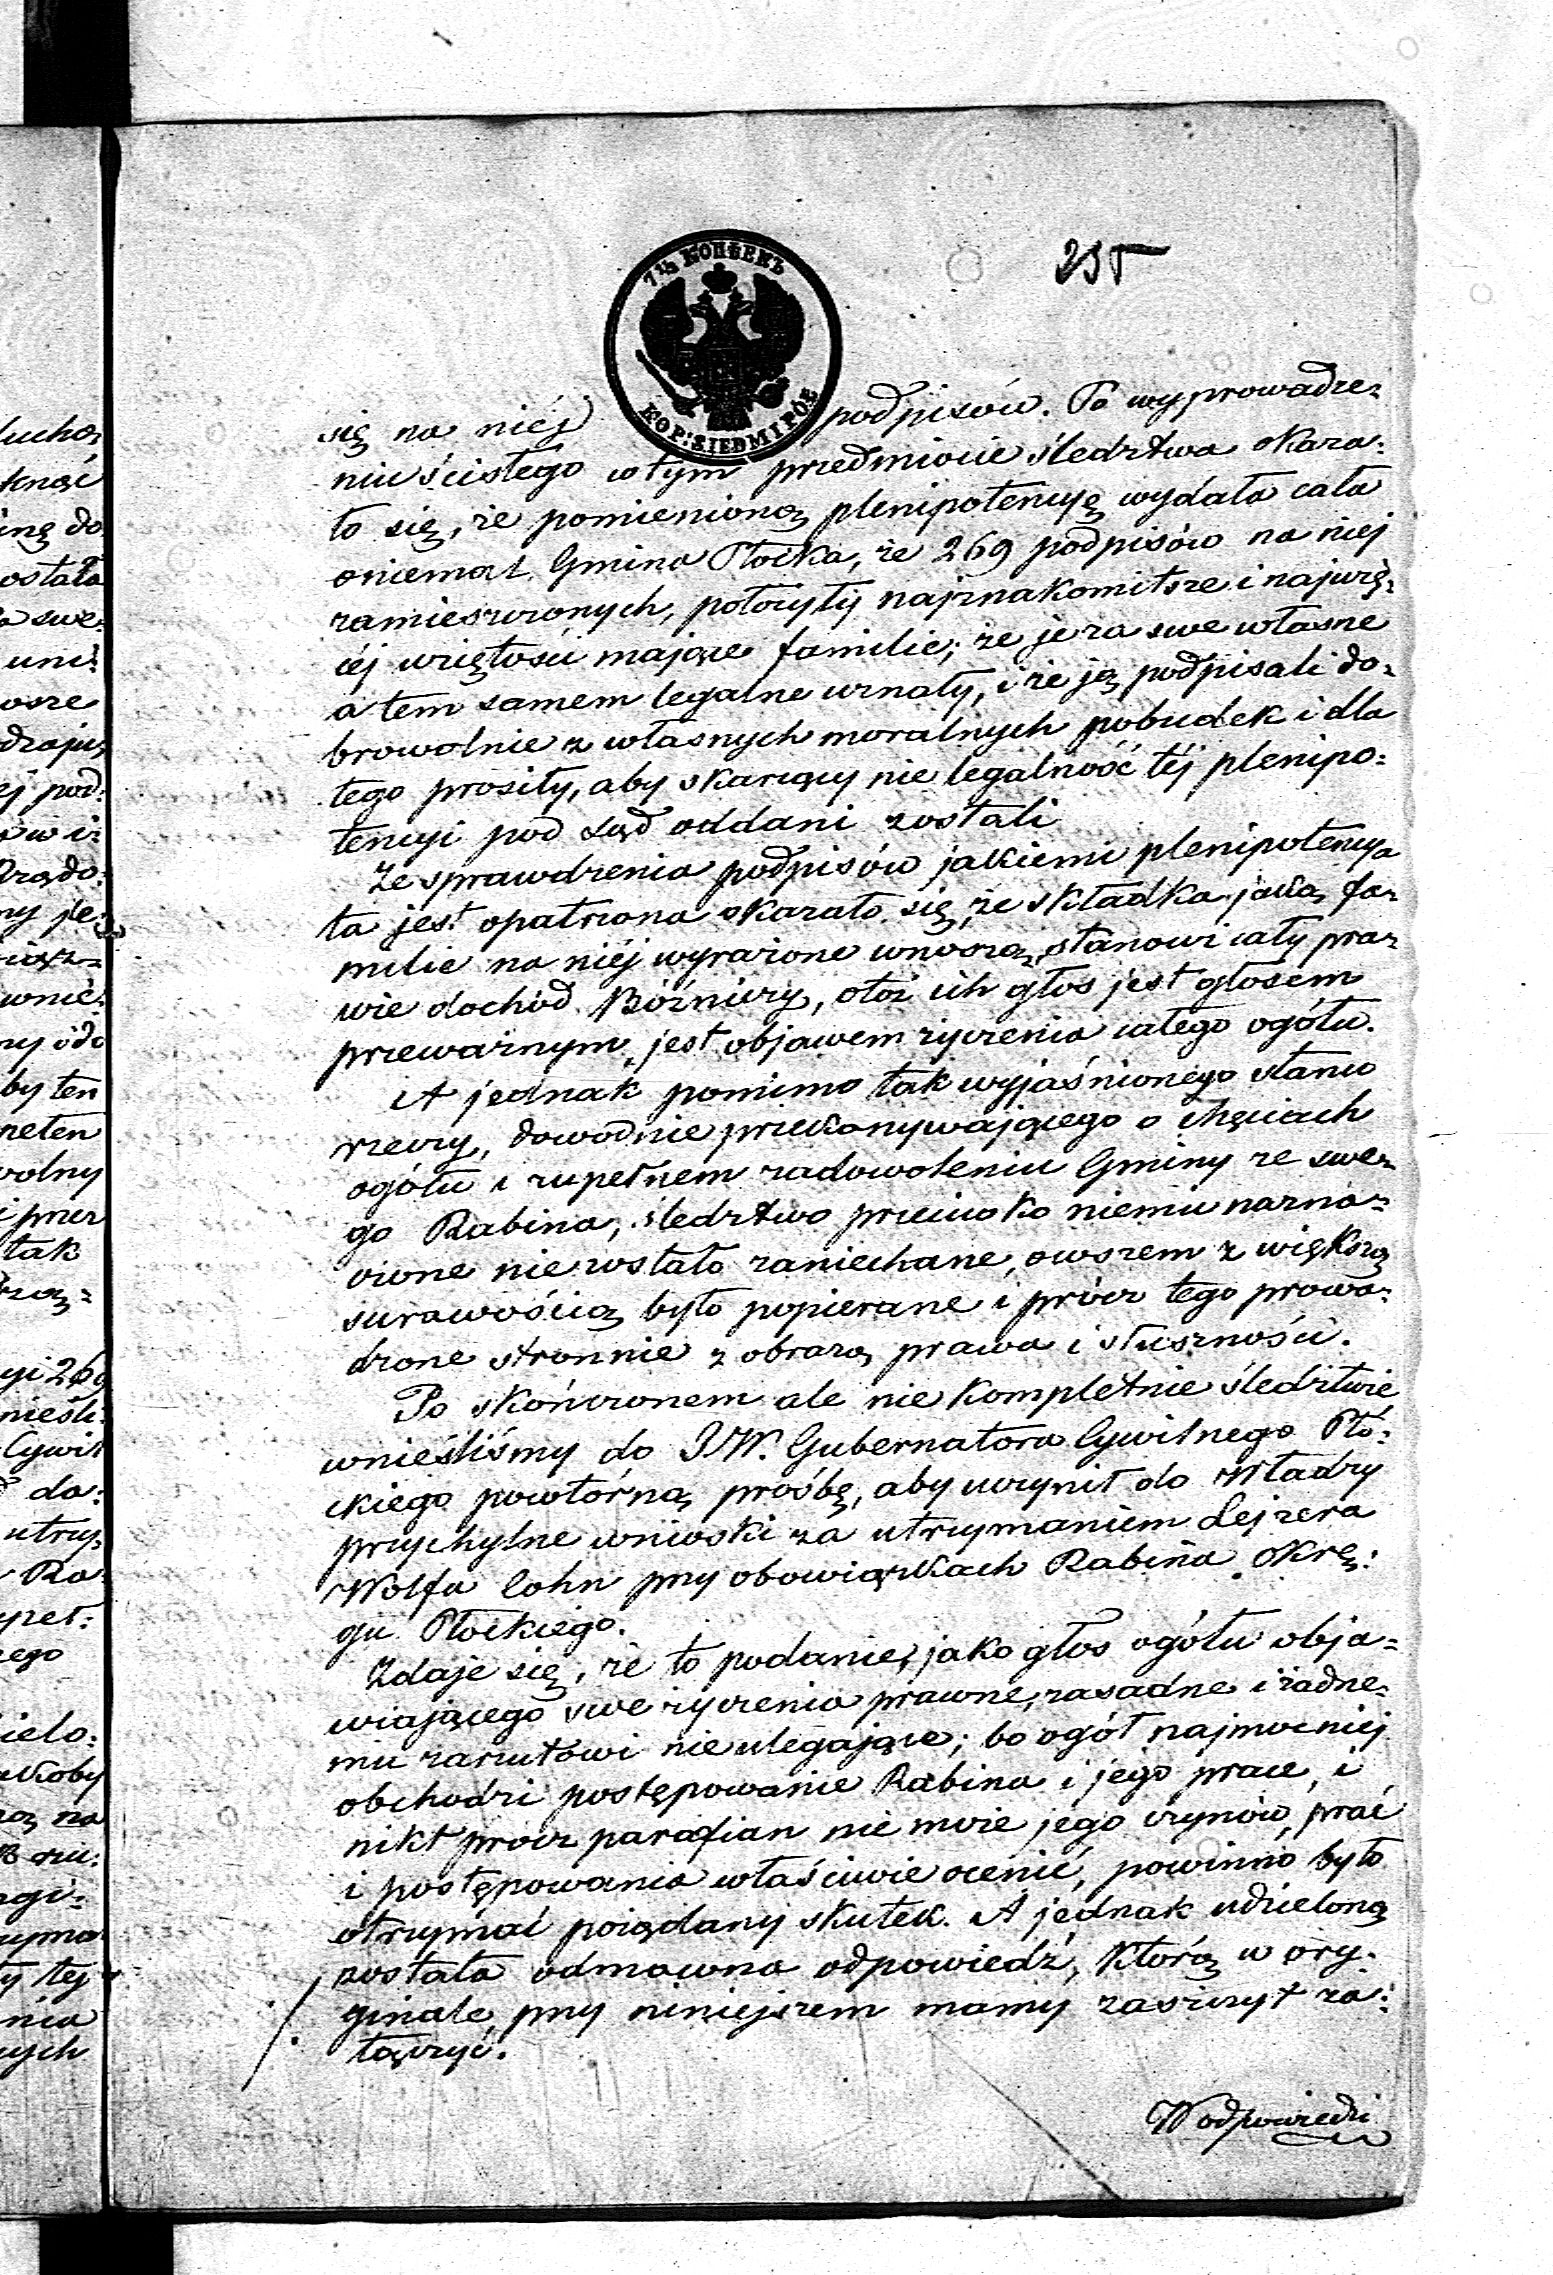 235
7½ КОПѢЕКЪ
KOP: SIEDM I PÓŁ
się na niéj podpisów. Po wyprowadze-
niu ścisłego w tym przedmiocie śledztwa okaza-
ło się, że pomienioną plenipotencyę wydała cała
oniemal Gmina Płocka, że 269 podpisów na niej
zamieszczonych, położyły najznakomitsze i najwię-
céj wziętości mające familie; że je za swe własne
a tem samem legalne uznały, i że ją podpisali do-
browolnie z własnych moralnych pobudek i dla
tego prosiły, aby skarżący nie legalność téj plenipo-
tencyi pod sąd oddani zostali
Ze sprawdzenia podpisów jakiemi plenipotencya
ta jest opatrzona okazało się, że składka jaką fa-
milie na niéj wyrażone wnoszą, stanowi cały pra-
wie dochód Bóżnicy, otóż ich głos jest głosem
przeważnym, jest objawem życzenia całego ogółu.
A jednak pomimo tak wyjaśnionego stanu
rzeczy, dowodnie przekonywającego o chęciach
ogółu i zupełnem zadowoleniu Gminy ze swe-
go Rabina, śledztwo przeciwko niemu nazna-
czone nie zostało zaniechane, owszem z większą
surowością było popierane i prócz tego prowa-
dzone stronnie z obrazą prawa i słuszności.
Po skończonem ale nie kompletnie śledztwie
wnieśliśmy do JW. Gubernatora Cywilnego Pło-
ckiego powtórną prośbę, aby uczynił do Władzy
przychylne wnioski za utrzymaniem Lejzera
Wolfa Cohn przy obowiązkach Rabina Okrę-
gu Płockiego.
Zdaje się, że to podanie, jako głos ogółu obja-
wiającego swe życzenia prawne, zasadne i żadne-
mu zarzutowi nie ulegające; bo ogół najmocniej
obchodzi postępowanie Rabina i jego prace, i
nikt prócz parafian nie może jego czynów, prac
i postępowania właściwie ocenić, powinno było
otrzymać pożądany skutek. A jednak udzieloną
została odmowna odpowiedź, którą w ory-
ginale, przy niniejszem mamy zaszczyt za-
łączyć.
W odpowiedzi